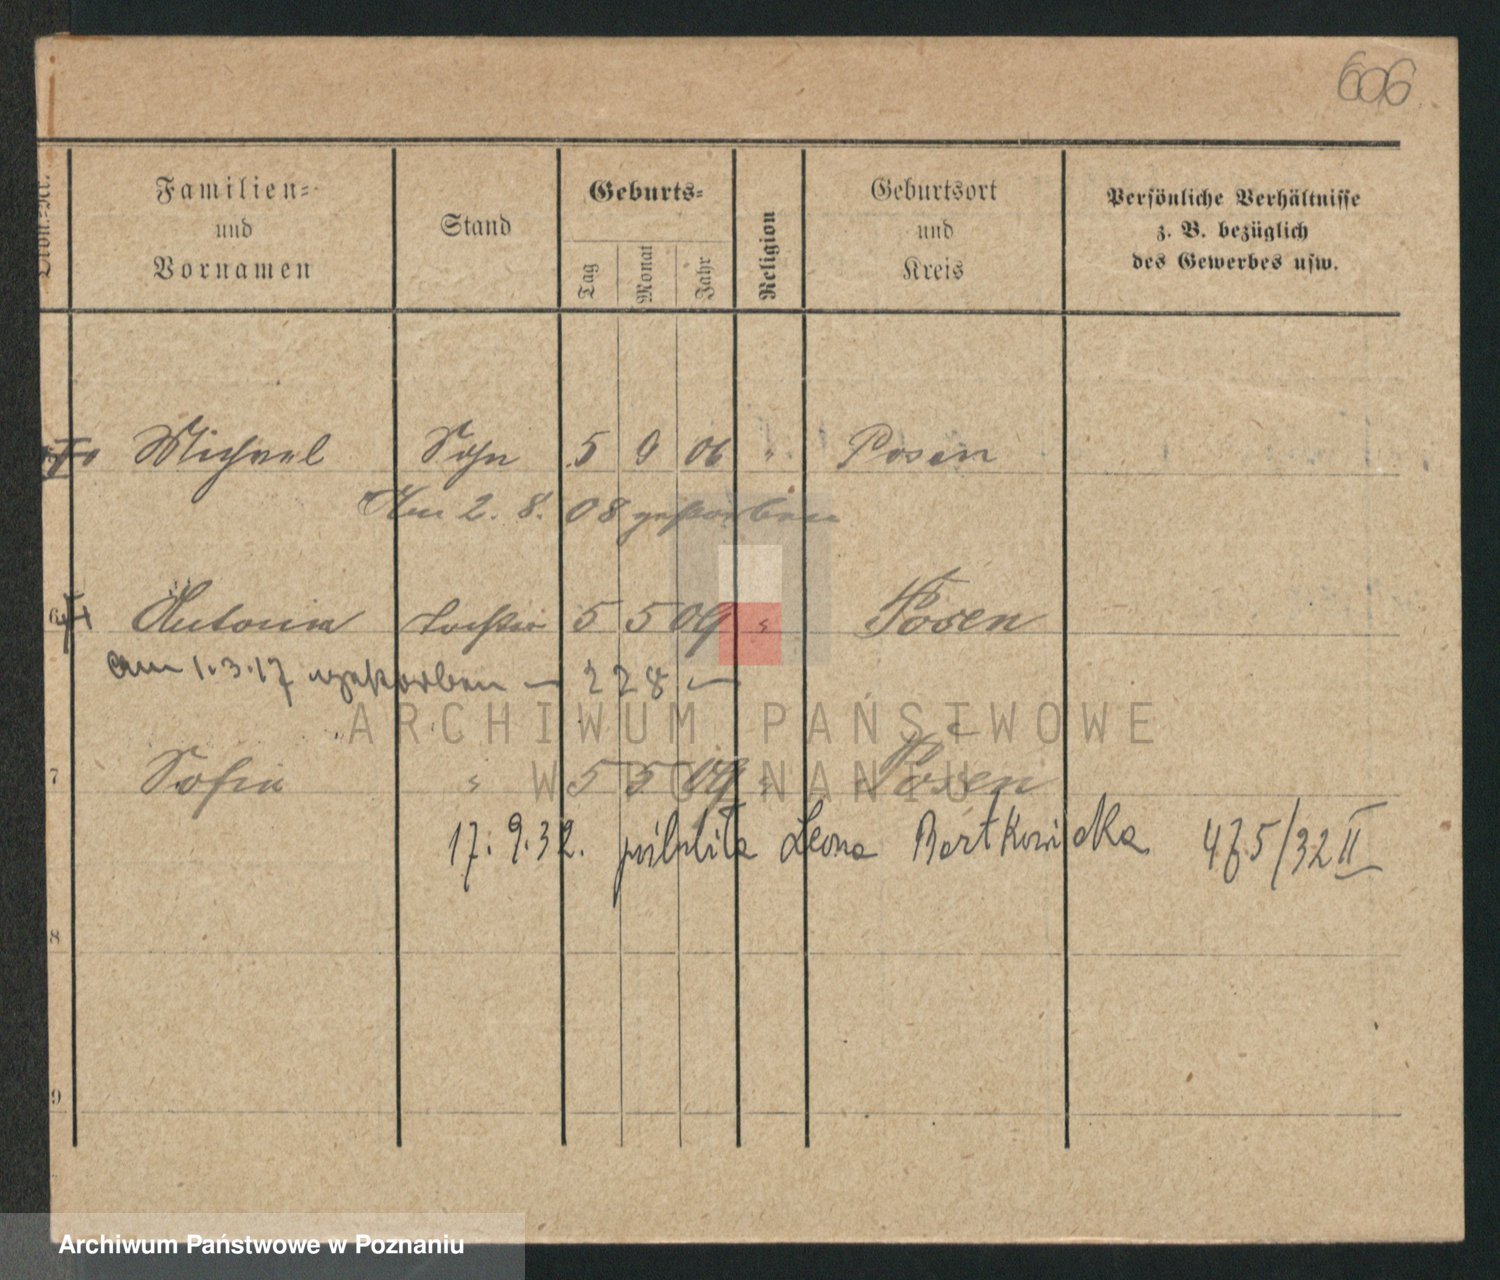 606
Familien= und Vornamen
Stand
Geburts=
Tag
Monat
Jahr
Religion
Geburtsort und Kreis
Persönliche Verhältnisse
z. B. bezüglich
des Gewerbes usw.
Michael Sohn 5 9 06 " Posen
Am 2. 8. 08 gestorben
6 Antonia Tochter 5 5 09 " Posen
am 1.3.17 gestorben — 228 —
ARCHIWUM PAŃSTWOWE
7 Sofia " 5 5 09 " Posen
W POZNANIU
17. 9. 32. poślubiła Leona Bartkowiaka 475/32 II
8
9
Archiwum Państwowe w Poznaniu